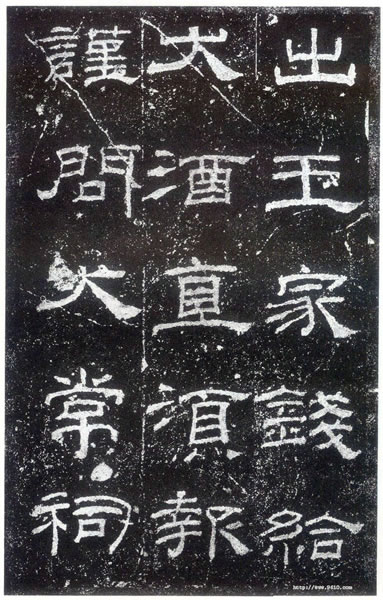 出王家錢給
犬酒直須報
謹問大常祠
http://www.9610.com